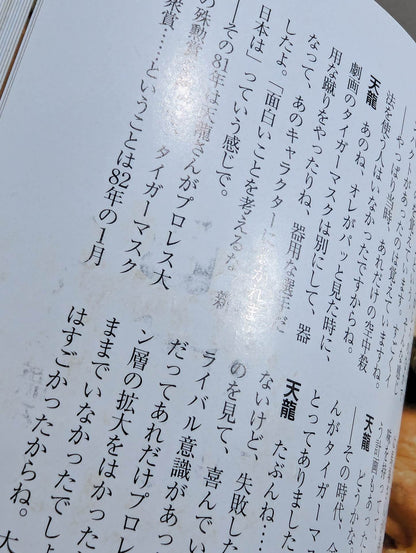 があったのは覚えています
——やっぱり当時、あれだけの空中殺
法を使う人はいなかったですからね。
天龍　あのね、オレがパッと見た時に、
劇画のタイガーマスクは別にして、器
用な蹴りをやったりね、器用な選手だ
なって、あのキャラクターに惹かれま
したよ。「面白いことを考えるな、新
日本は」っていう感じで。
——その81年は天龍さんがプロレス大
の殊勲賞 タイガーマスク
衆賞……ということは82年の1月
天龍　どうかな
——その時代、全
んがタイガーマ
とってありました
天龍　たぶんね…
ないけど、失敗した
のを見て、喜んでい
ライバル意識があっ
だってあれだけプロレ
ン層の拡大をはかった
ままでいなかったでしょ
はすごかったからね。大